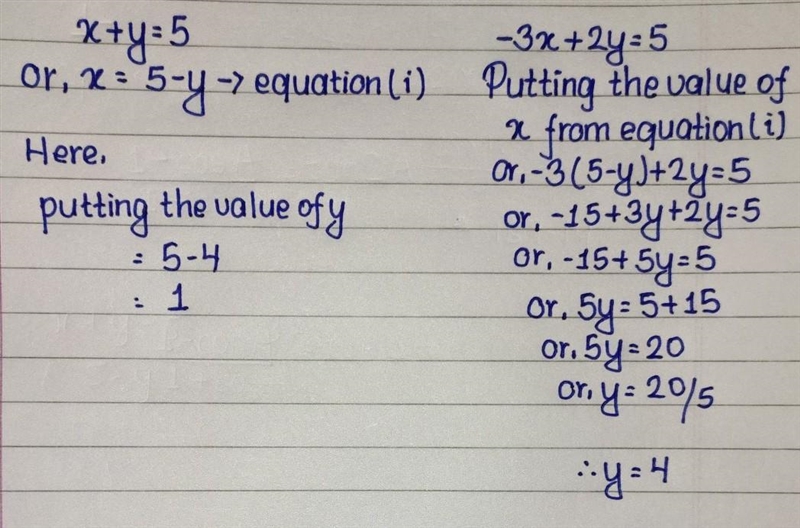 x+y=5
or, x = 5-y → equation(i)
Here,
putting the value of y
= 5-4
= 1
-3x+2y=5
Putting the value of
x from equation(i)
or, -3(5-y)+2y=5
or, -15+3y+2y=5
or, -15+5y=5
or, 5y=5+15
or. 5y=20
or, y= 20/5
∴y=4